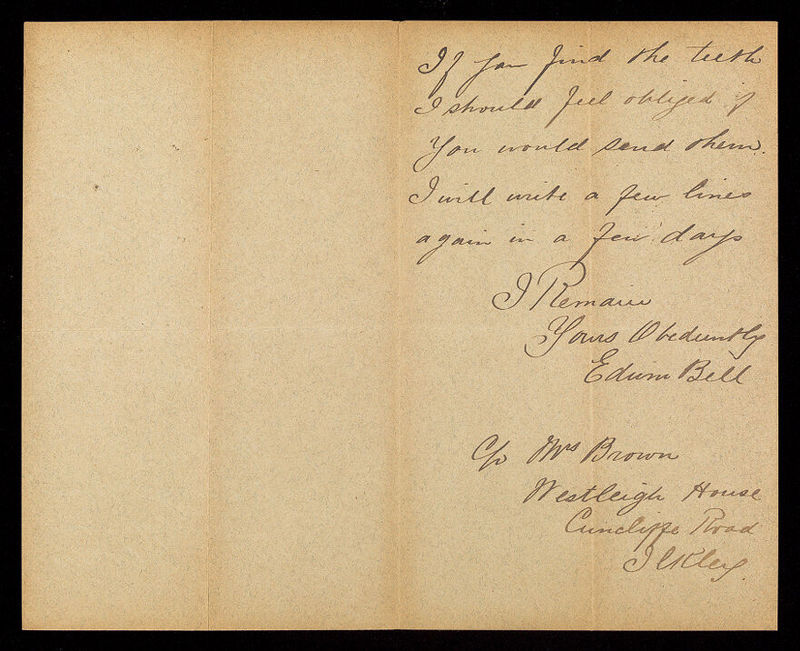 If you find the teeth
I should feel obliged if
You would send them.
I will write a few lines
again in a few days
I Remain
Yours Obediently
Edwin Bell
C/o Mrs Brown
Westleigh House
Cuncliffe Road
Ilkley.